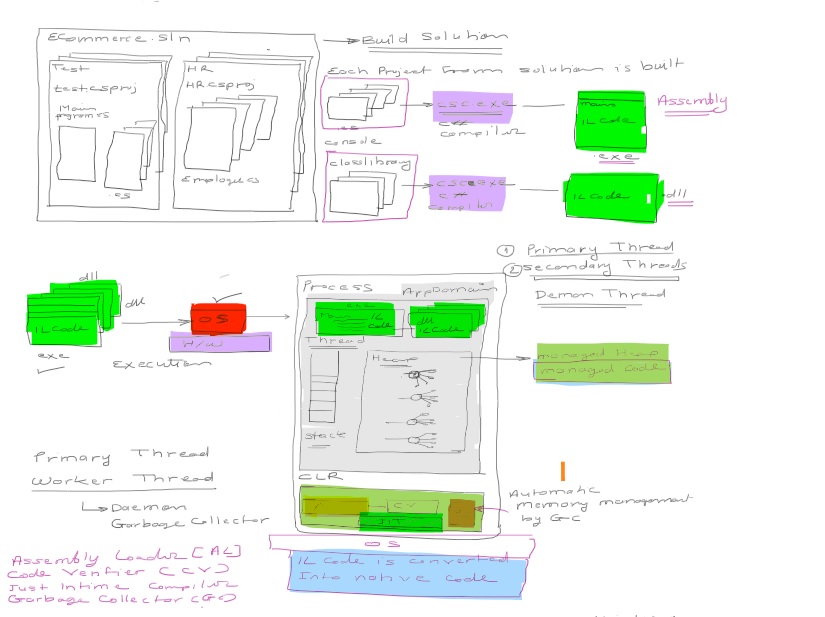 ECommerce.sln
Build Solution
Test
test.csproj
Main
programcs
.cs
HR
HR.csproj
Employee.cs
Each Project from solution is built
.cs
console
csc.exe
c#
compiler
main
IL Code
exe
Assembly
classlibrary
csc.exe
c#
IL Code
dll
① Primary Thread
② Secondary Threads
Demon Thread
dll
dll
IL Code
exe
Execution
OS
H/W
Process
AppDomain
IL
Code
dll
IL Code
Thread
Stack
Heap
managed Heap
managed Code
CLR
CV
JIT
Automatic
memory management
by GC
OS
IL Code is converted
Into native code
Prmary Thread
Worker Thread
Daemon
Garbage Collector
Assembly Loader [AL]
Code Verifier (CV)
Just Intime Compiler
Garbage Collector (GC)